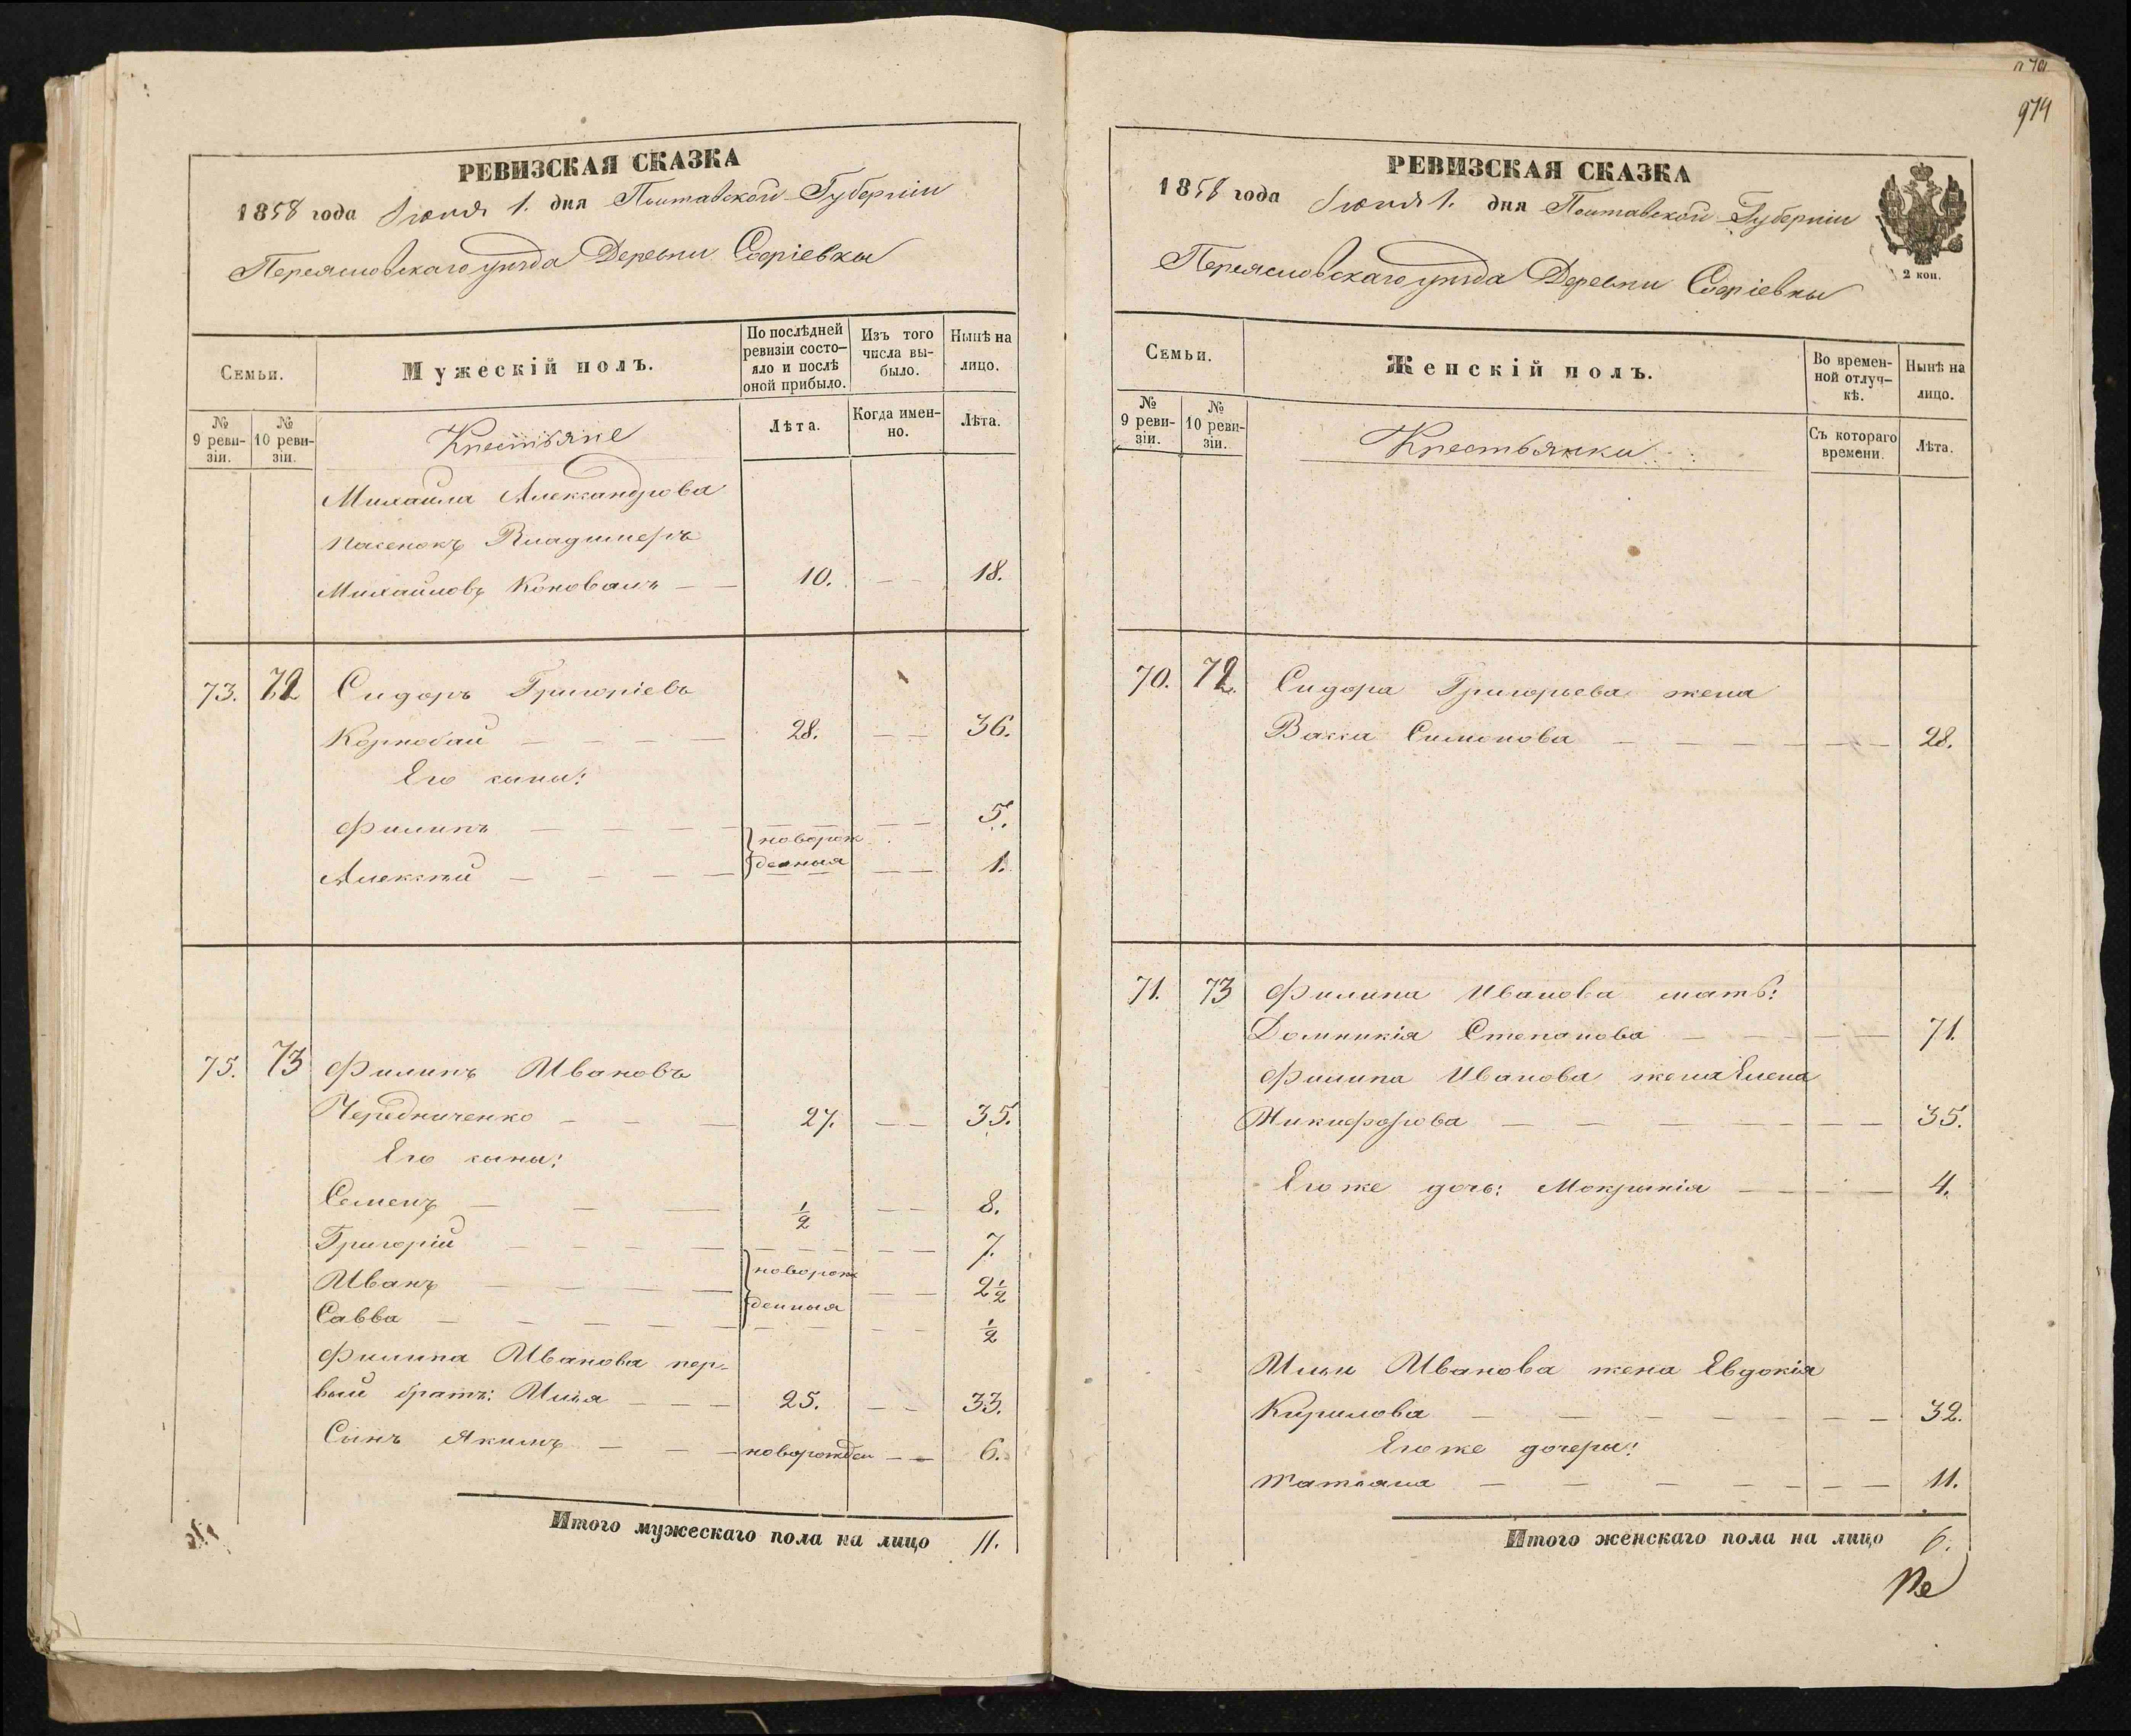 РЕВИЗСКАЯ СКАЗКА
1858 года Іюня 1. дня Полтавской Губерніи
Переясловскаго уѣзда Деревни Софіевки
Семьи.
Мужескій полъ.
По послѣдней ревизіи состо-
яло и послѣ оной прибыло.
Изъ того числа вы-
было.
Нынѣ на лицо.
№ 9 реви-
зіи.
№ 10 реви-
зіи.
Крестьяне
Лѣта.
Когда имен-
но.
Лѣта.
Михаила Александрова
пасенокъ Владимеръ
Михайловъ Коновалъ — — 10. — 18.
73. 72 Сидоръ Григоріевъ
Корнобай — — — — 28. — — 36.
Его сыны:
Филипъ — — — — — — 5.
новорож
Алексѣй — — — — денныя — — 1.
75. 73 Филипъ Ивановъ
Чередниченко — — — 27. — — 35.
Его сыны:
Семенъ — — — 1/2 — — 8.
Григорій — — — — — — 7.
Иванъ — — — новорож — — 2 1/2
Савва — — — — — денныя — — 1/2
Филипа Иванова пер-
вый братъ: Илья — — — 25. — — 33.
Сынъ Якимъ — — — новорожден — — 6.
Итого мужескаго пола на лицо 11.
974
РЕВИЗСКАЯ СКАЗКА
1858 года Іюня 1. дня Полтавской Губерніи
2 коп.
Переясловскаго уѣзда Деревни Софіевки
Семьи.
Женскій полъ.
Во времен-
ной отлуч-
кѣ.
Нынѣ на лицо.
№ 9 реви-
зіи.
№ 10 реви-
зіи.
Крестьянки
Съ котораго времени.
Лѣта.
70. 72. Сидора Григорьева жена
Васса Симонова — — — — — — 28.
71. 73 Филипа Иванова мать:
Домникія Степанова — — — — — 71.
Филипа Иванова жена Елена
Никифорова — — — — — — — 35.
Его же дочь: Мокрынія — — — — 4.
Ильи Иванова жена Евдокія
Кирилова — — — — — — — — 32.
Его же дочери:
Татьяна — — — — — — — — 11.
Итого женскаго пола на лицо 6.